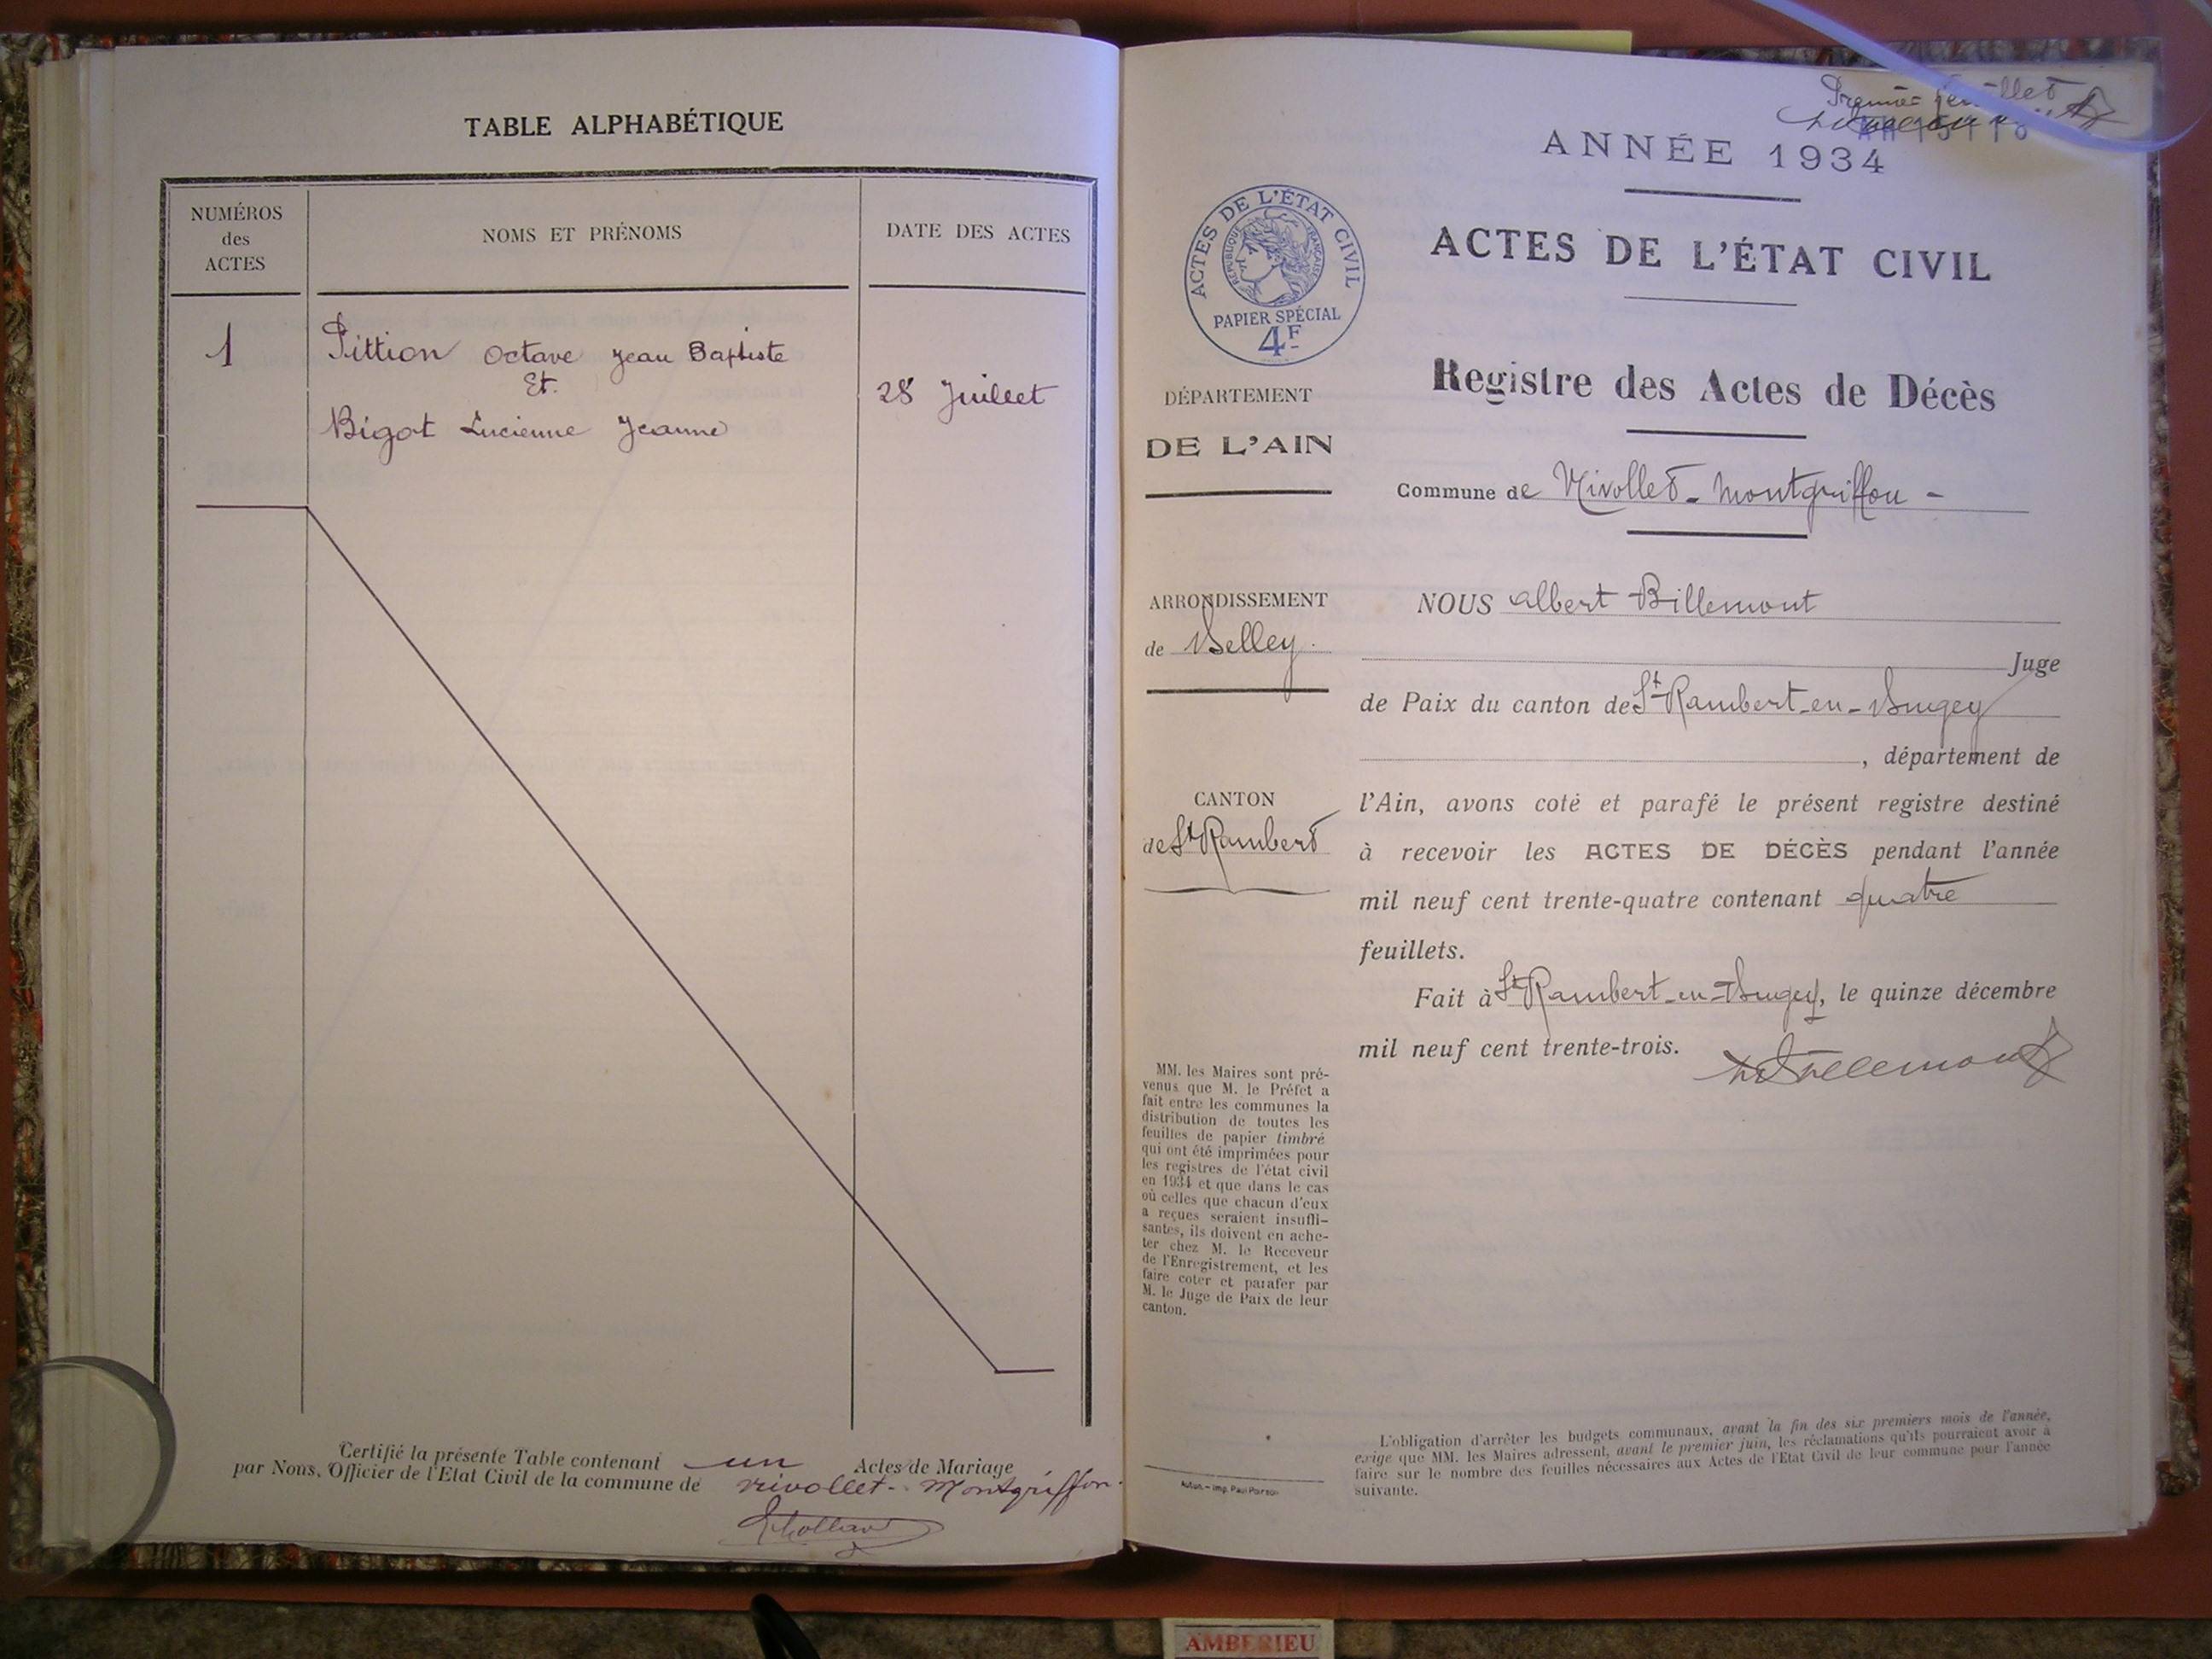 TABLE ALPHABÉTIQUE
NUMÉROS
des
ACTES
NOMS ET PRÉNOMS
DATE DES ACTES
1
Pittion Octave Jean Baptiste
Et
28 Juillet
Bigot Lucienne Jeanne
Certifié la présente Table contenant un Actes de Mariage
par Nous, Officier de l'Etat Civil de la commune de rivollet - Montgriffon.
Premier feuillet
ANNÉE 1934
ACTES DE L'ÉTAT CIVIL
RÉPUBLIQUE FRANÇAISE
PAPIER SPÉCIAL
4F
ACTES DE L'ÉTAT CIVIL
Registre des Actes de Décès
DÉPARTEMENT
DE L'AIN
Commune de Nivollet - Montgriffon -
ARRONDISSEMENT
de Belley.
NOUS Albert Billemont
Juge
de Paix du canton de St Rambert-en-Bugey
, département de
CANTON
de St Rambert
l'Ain, avons coté et parafé le présent registre destiné
à recevoir les ACTES DE DÉCÈS pendant l'année
mil neuf cent trente-quatre contenant quatre
feuillets.
Fait à St Rambert-en-Bugey, le quinze décembre
mil neuf cent trente-trois.
MM. les Maires sont pré-
venus que M. le Préfet a
fait entre les communes la
distribution de toutes les
feuilles de papier timbré
qui ont été imprimées pour
les registres de l'état civil
en 1934 et que dans le cas
où celles que chacun d'eux
a reçues seraient insuffi-
santes, ils doivent en ache-
ter chez M. le Receveur
de l'Enregistrement, et les
faire coter et parafer par
M. le Juge de Paix de leur
canton.
L'obligation d'arrêter les budgets communaux, avant la fin des six premiers mois de l'année,
exige que MM. les Maires adressent, avant le premier juin, les réclamations qu'ils pourraient avoir à
faire sur le nombre des feuilles nécessaires aux Actes de l'Etat Civil de leur commune pour l'année
suivante.
AMBERIEU